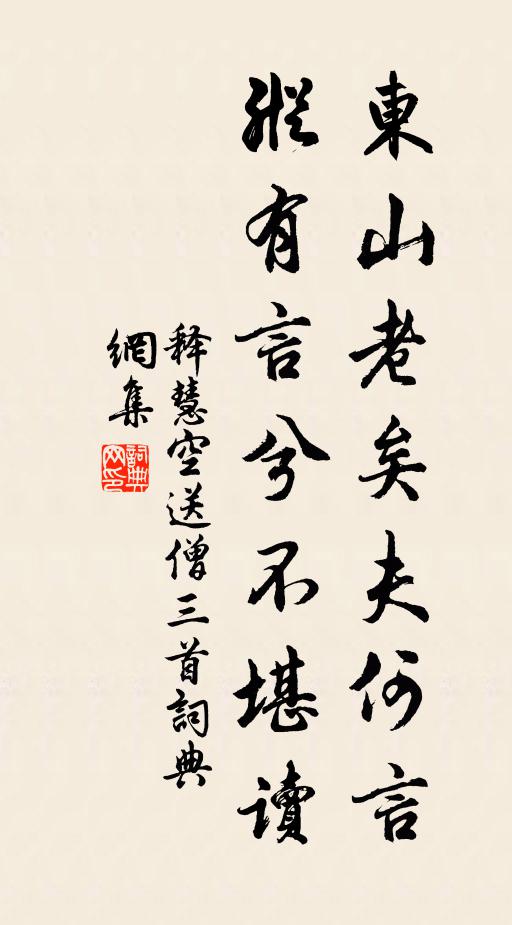 東山老矣夫何言
縱有言兮不堪讀
释慧空送僧三首詞典
網集
詞典网印